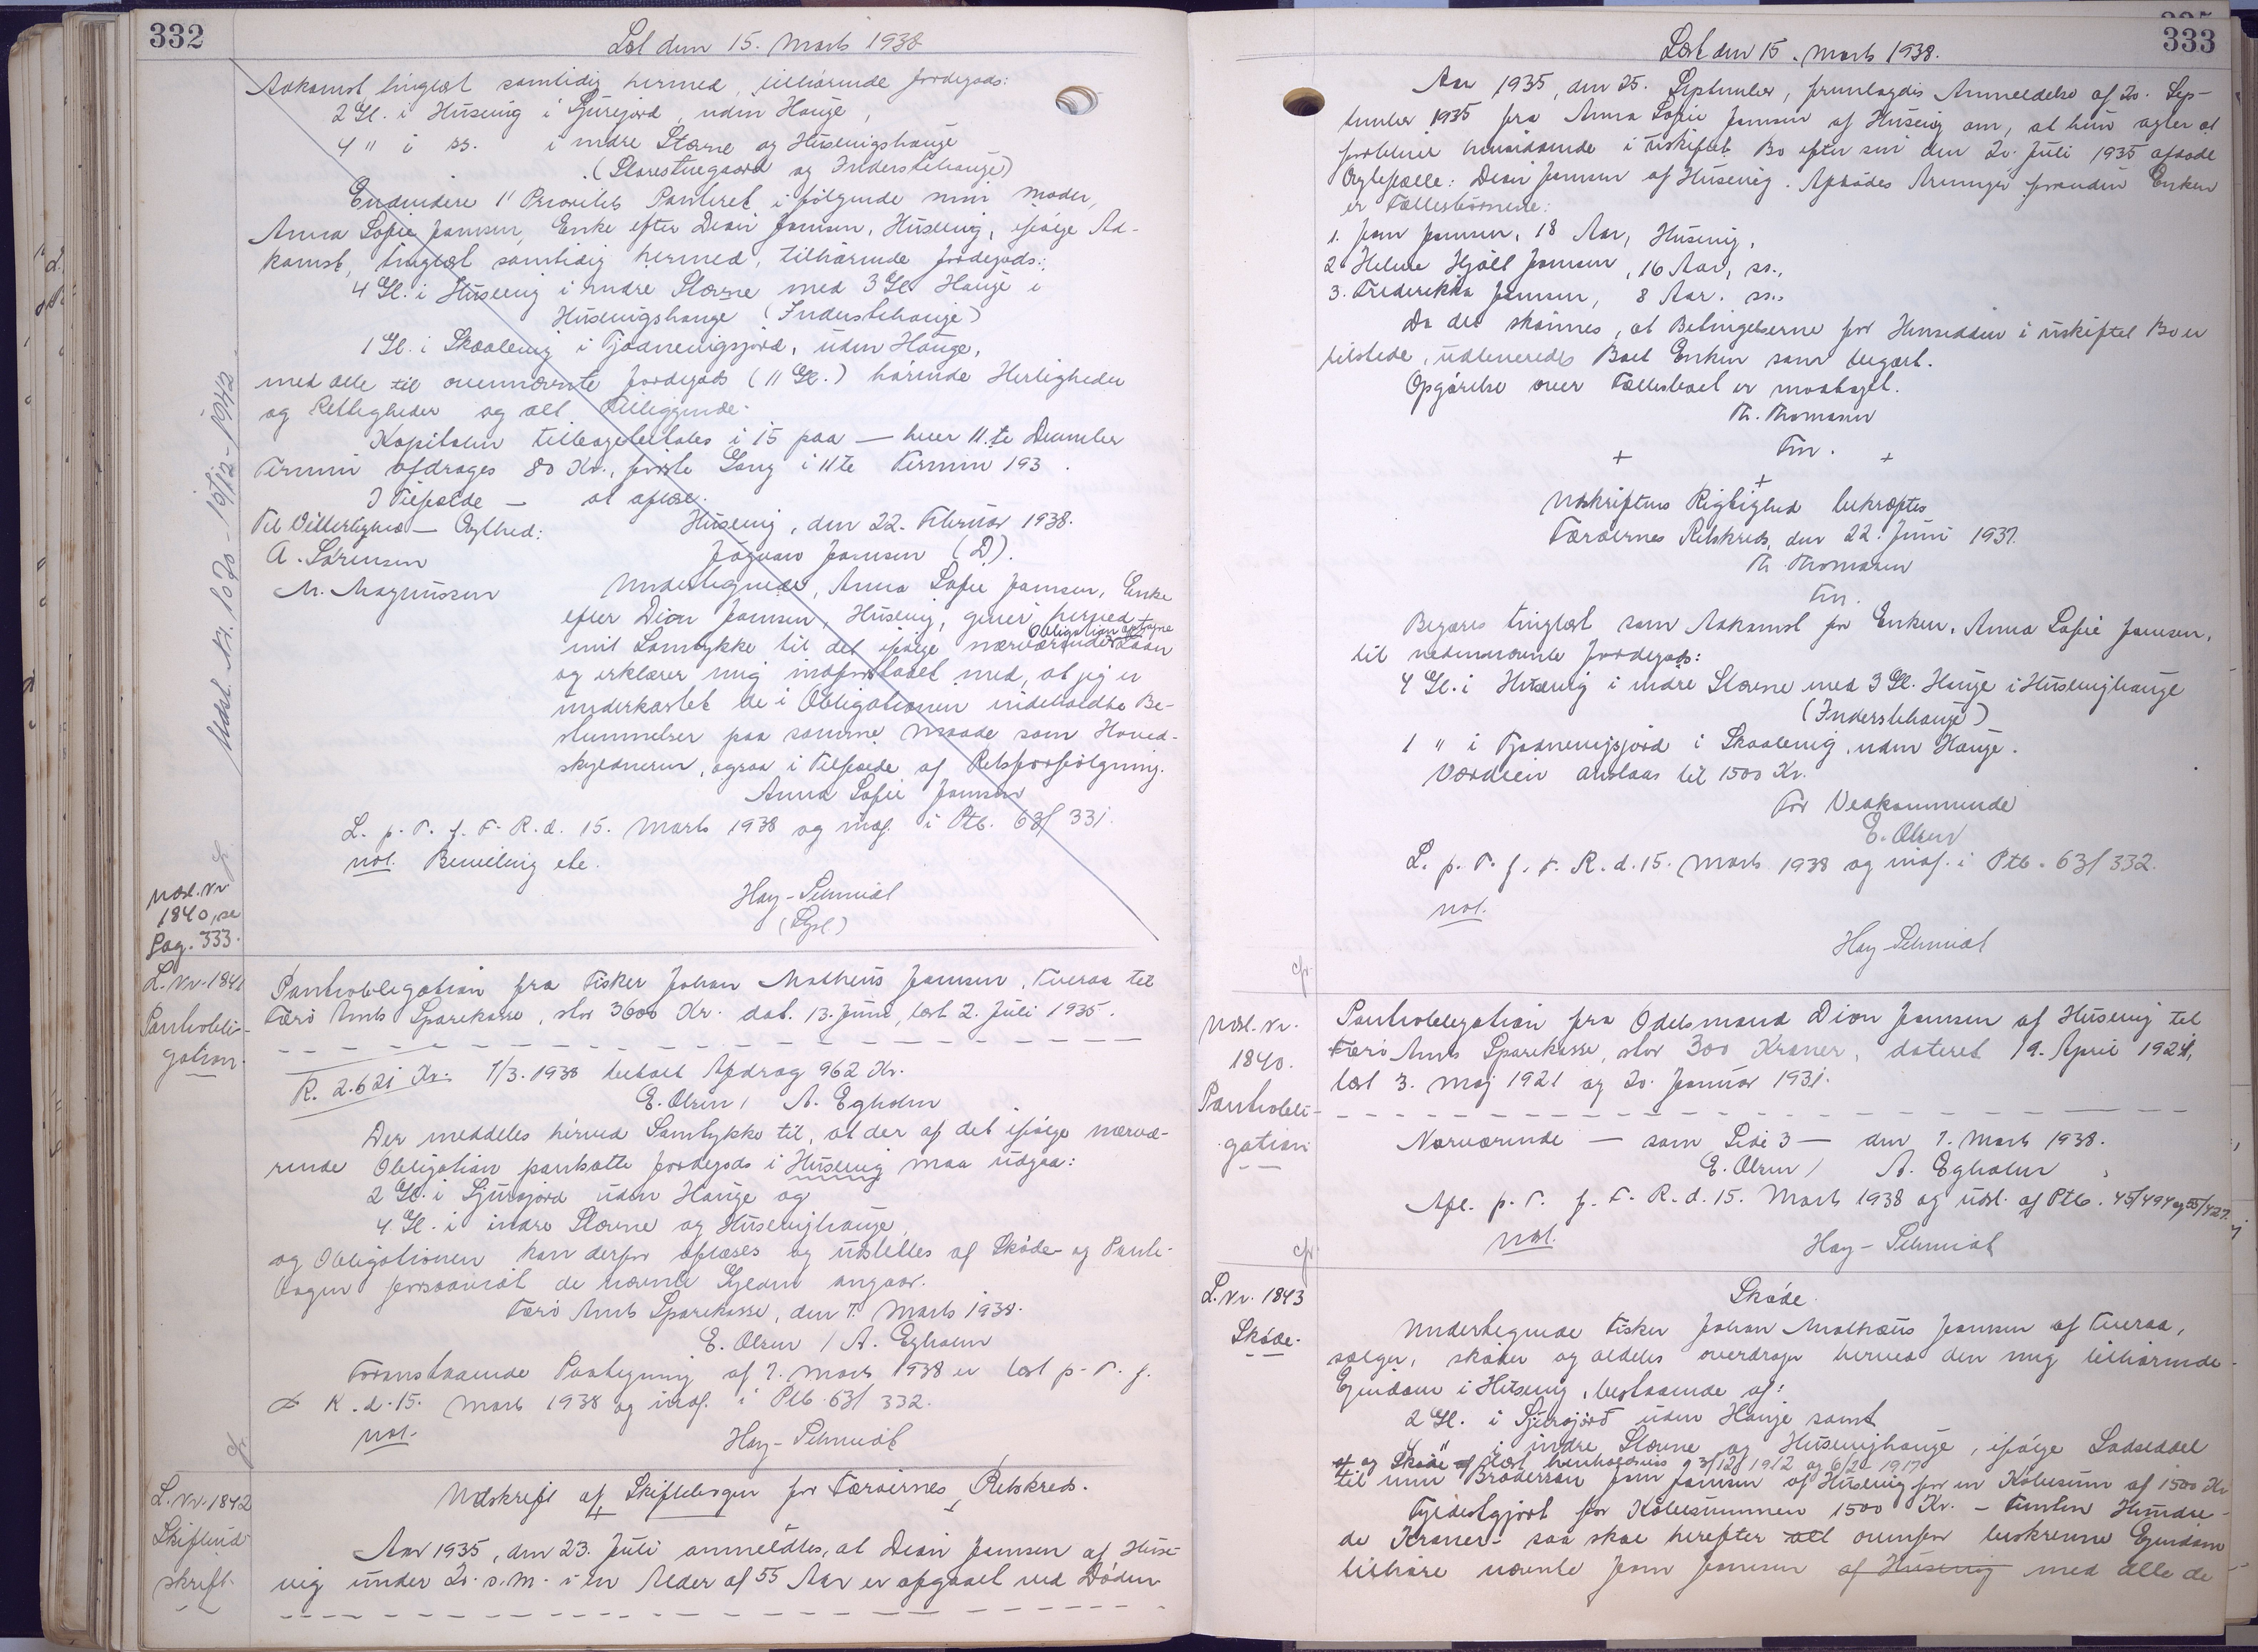 332
Læst den 15. Marts 1938
Adkomst tinglæst samtidig hermed, tilhørende Jordegods:
2 Gl. i Húsevig i Sjúrejord, uden Hauge,
4 " i ss. i indre Stovne og Húsevigshauge
(Storestuegaard og Inderstehauge)
Endvidere 1' Prioritets Panteret i følgende min Moder,
Anna Sofie Jansen, Enke efter Dion Jansen, Húsevig, ifølge Ad-
komst, tinglæst samtidig hermed, tilhørende Jordegods:
4 Gl. i Húsevig i indre Stovne med 3 Gl. Hauge i
Húsevigshauge (Inderstehauge)
1 Gl. i Skaalevig i Tjodnevigsjord, uden Hauge,
med alle til ovennævnte Jordegods (11 Gl.) hørende Herligheder
og Rettigheder og alt Tilliggende.
Kapitalen tilbagebetales i 15 paa — hver 11.te December
Termin afdrages 80 Kr., første Gang i 11te Termin 193 .
I Tilfælde — at aflæse.
Til Vitterlighed — Ægthed:
Húsevig, den 22. Februar 1938.
A. Sørensen
Jógvan Jansen (D).
M. Magnussen
Undertegnede, Anna Sofie Jansen, Enke
efter Dion Jansen, Húsevig, giver herved
mit Samtykke til det ifølge nærværende Obligation optagne Laan
og erklærer mig indforstaaet med, at jeg er
underkastet de i Obligationen indeholdte Be-
stemmelser paa samme Maade som Hoved-
skyldneren, ogsaa i Tilfælde af Retsforfølgning.
Anna Sofie Jansen
L. p. T. f. F. R. d. 15. Marts 1938 og indf. i Ptb. 63/331.
not. Bevilling etc.
Hay-Schmidt
(Sysl)
Udsl. Nr. 1070 - 10/12 - 1942
Udsl. Nr
1840, se
Pag. 333.
L. Nr. 1841
Pantobli-
gation.
Pantobligation fra Fisker Johan Matheus Jansen, Tveraa til
Færø Amts Sparekasse, stor 3600 Kr. dat. 13. Juni, læst 2. Juli 1935.
R. 2.621 Kr. 7/3. 1938 betalt Afdrag 962 Kr.
E. Olsen / A. Egholm
Der meddeles herved Samtykke til, at der af det ifølge nærvæ-
rende Obligation pantsatte Jordegods i Húsevig maa udgaa:
2 Gl. i Sjúrsjord uden Hauge og
4 Gl. i indre Stovne og Húsevighauge,
og Obligationen kan derfor aflæses og udslettes af Skøde- og Pante-
bogen forsaavidt de nævnte Gylden angaar.
Færø Amts Sparekasse, den 7. Marts 1938.
E. Olsen / A. Egholm
Foranstaaende Paategning af 7. Marts 1938 er læst p. T. f.
F. R. d. 15. Marts 1938 og indf. i Ptb. 63/332.
not.
Hay-Schmidt
cfr.
L. Nr. 1842
Skifteud-
skrift.
Udskrift af Skiftebogen for Færøernes Retskreds.
Aar 1935, den 23. Juli anmeldtes, at Dion Jansen af Húse-
vig under 20. s.M. i en Alder af 55 Aar er afgaaet ved Døden
333
Læst den 15. Marts 1938.
Aar 1935, den 25. September, fremlagdes Anmeldelse af 20. Sep-
tember 1935 fra Anna Sofie Jansen af Húsevig om, at hun agter at
forblive hensiddende i uskiftet Bo efter sin den 20. Juli 1935 afdøde
Ægtefælle: Dion Jansen af Húsevig. Afdødes Arvinger foruden Enken
er Fællesbørnene:
1. Jan Jansen, 18 Aar, Húsevig,
2. Helene Hjall Jansen, 16 Aar, ss.,
3. Frederikka Jansen, 8 Aar. ss.,
Da det skønnes, at Betingelserne for Hensidden i uskiftet Bo er
tilstede, udleveredes Boet Enken som begært.
Opgørelse over Fællesboet er modtaget.
Th. Thomasen
Fm.
+ + +
Udskriftens Rigtighed bekræftes
Færøernes Retskreds, den 22. Juni 1937.
Th. Thomasen
Fm.
Begæres tinglæst som Adkomst for Enken, Anna Sofie Jansen,
til nedennævnte Jordegods:
4 Gl. i Húsevig i indre Stovne med 3 Gl. Hauge i Húsevighauge
(Inderstehauge)
1 " i Tjodnevigsjord i Skaalevig, uden Hauge.
Værdien anslaas til 1500 Kr.
For Vedkommende
E. Olsen
L. p. T. f. F. R. d. 15. Marts 1938 og indf. i Ptb. 63/332.
not.
Hay-Schmidt
cfr.
Udsl. Nr.
1840.
Pantobli-
gation
Pantobligation fra Odelsmand Dion Jansen af Húsevig til
Færø Amts Sparekasse, stor 300 Kroner, dateret 19. April 1921,
læst 3. Maj 1921 og 20. Januar 1931.
Nærværende — som Side 3 — den 7. Marts 1938.
E. Olsen / A. Egholm
Afl. p. T. f. F. R. d. 15. Marts 1938 og udsl. af Ptb. 45/494 og 55/427.
not.
Hay-Schmidt
cfr.
L. Nr. 1843
Skøde.
Skøde
Undertegnede Fisker Johan Mathæus Jansen af Tveraa,
sælger, skøder og aldeles overdrager herved den mig tilhørende
Ejendom i Húsevig, bestaaende af:
2 Gl. i Sjúrsjord uden Hauge samt
4 " i indre Stovne og Húsevighauge, ifølge Lodseddel
og Skøde læst henholdsvis 3/12 1912 og 6/2 1917
til min Brodersøn Jan Jansen af Húsevig for en Købesum af 1500 Kr
Fyldestgjort for Købesummen 1500 Kr. - Femten Hundre-
de Kroner - saa skal herefter alt ovenfor beskrevne Ejendom
tilhøre nævnte Jan Jansen af Húsevig med alle de